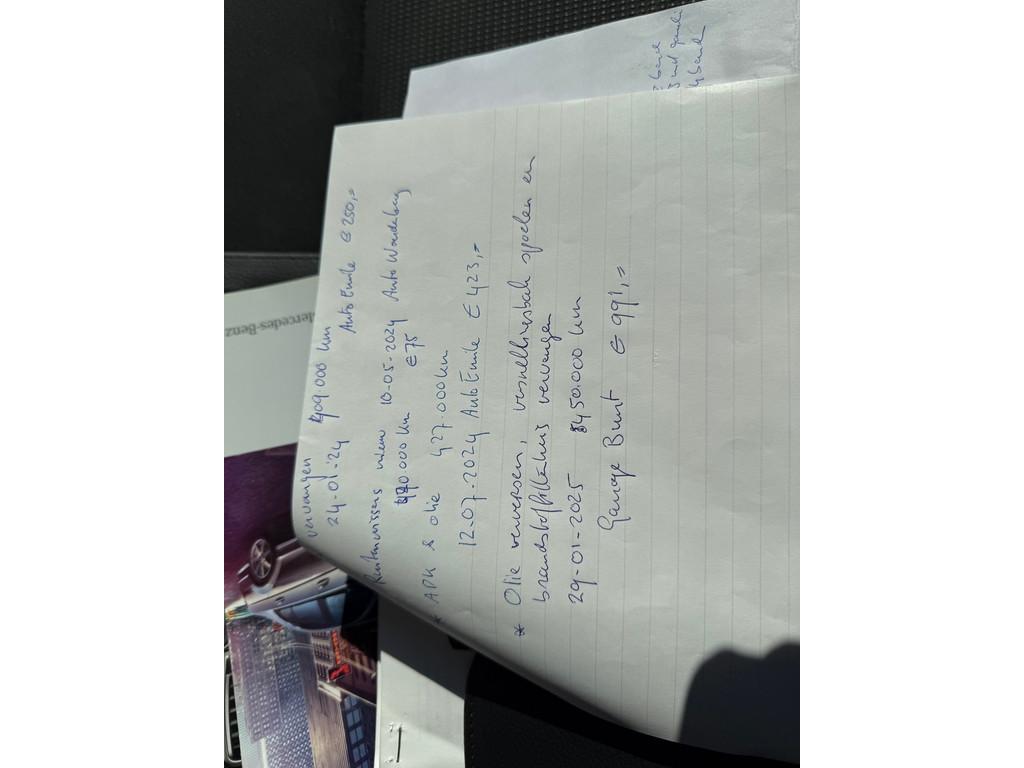 vervangen
24-01-'24 409.000 km
Auto Emile € 250,=
Ruitenwissers nieuw 10-05-2024 Auto
420.000 km € 75
* APK & olie 427.000 km
12-07-2024 Auto Emile € 423,=
* Olie verversen, versnellingsbak spoelen en
brandstoffilterhuis vervangen
29-01-2025 450.000 km
Garage Bunt € 991,=
Mercedes-Benz